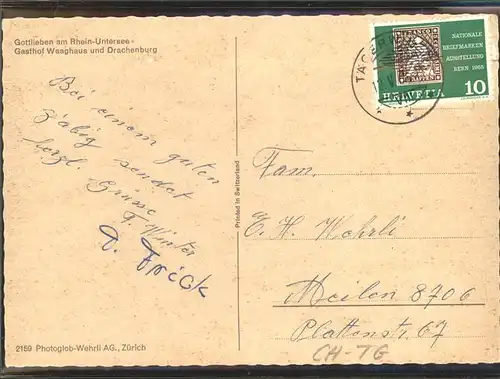 Gottlieben am Rhein-Untersee
Gasthof Waaghaus und Drachenburg
Bei einem guten
Zabig sendet
herzl. Grüsse
F. Winter
D. Frick
2159 Photoglob-Wehrli AG., Zürich
Printed in Switzerland
NATIONALE
BRIEFMARKEN
AUSSTELLUNG
BERN 1965
HELVETIA 10
Fam.
E. H. Wehrli
Meilen 8706
Plattenstr. 67
CH-TG